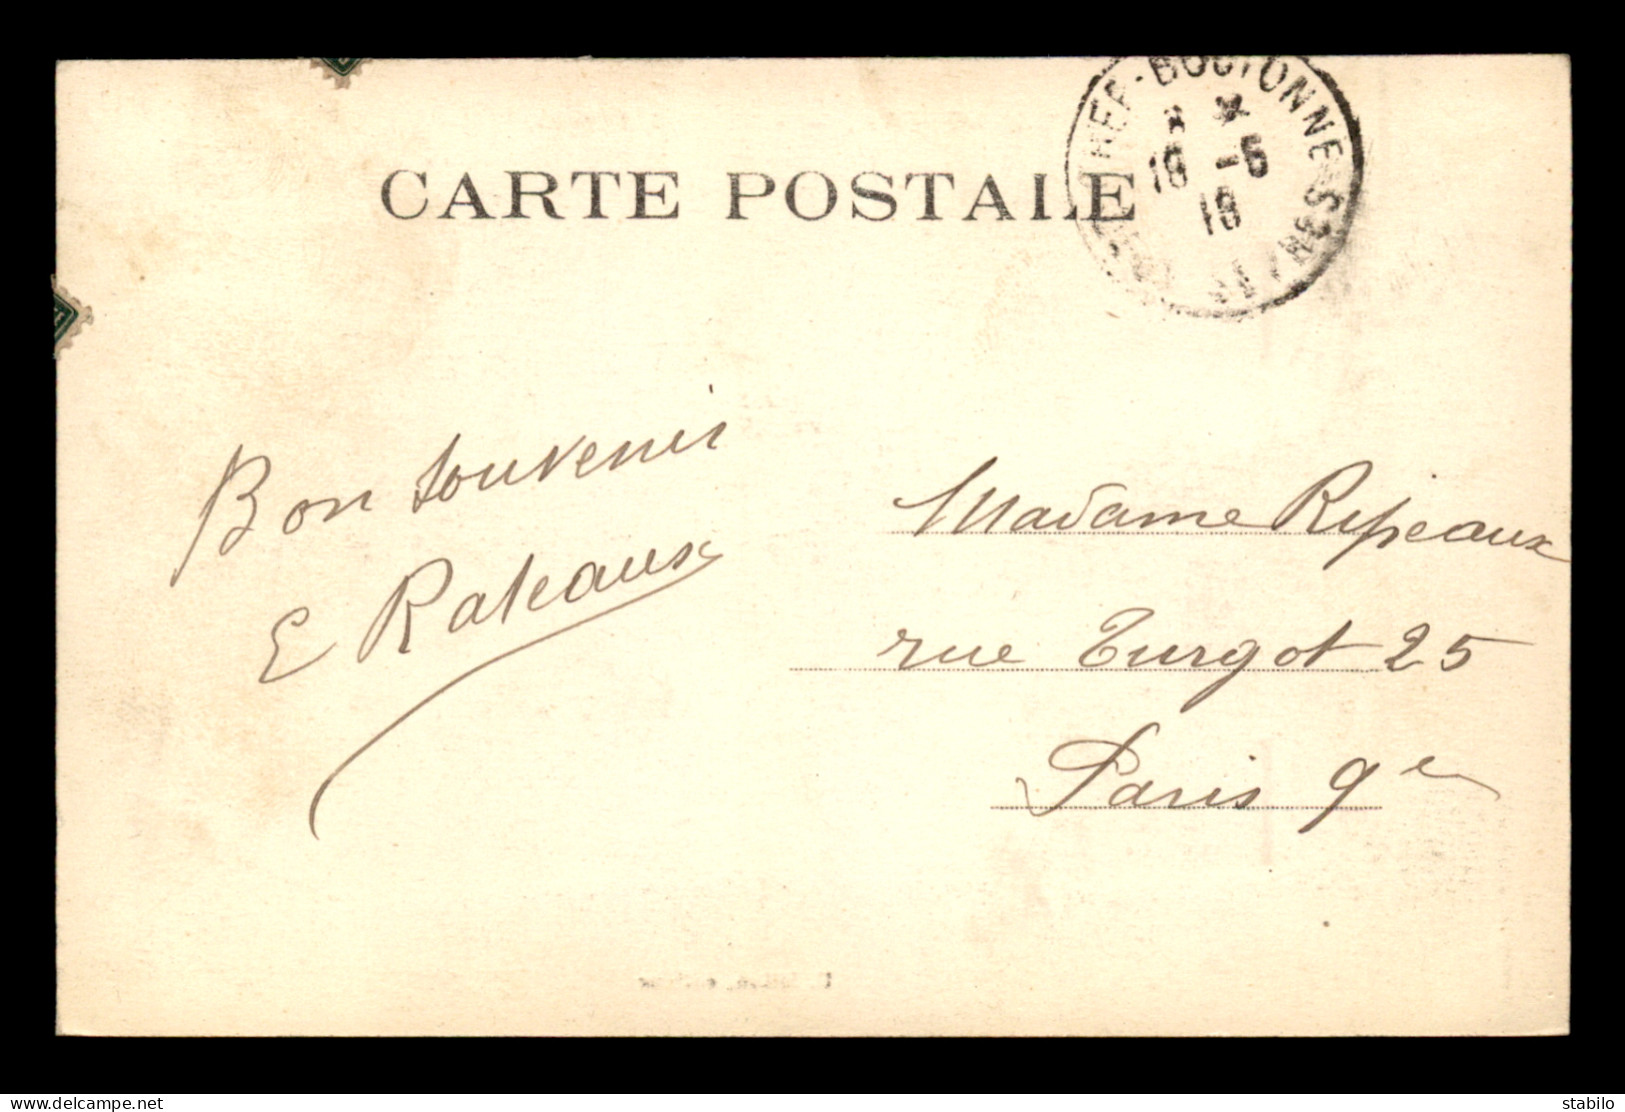 CARTE POSTALE
CHEF-BOUTONNE
16 -5
18
Bon souvenir
E Rateaux
Madame Ripeaux
rue Turgot 25
Paris 9e
stabilo